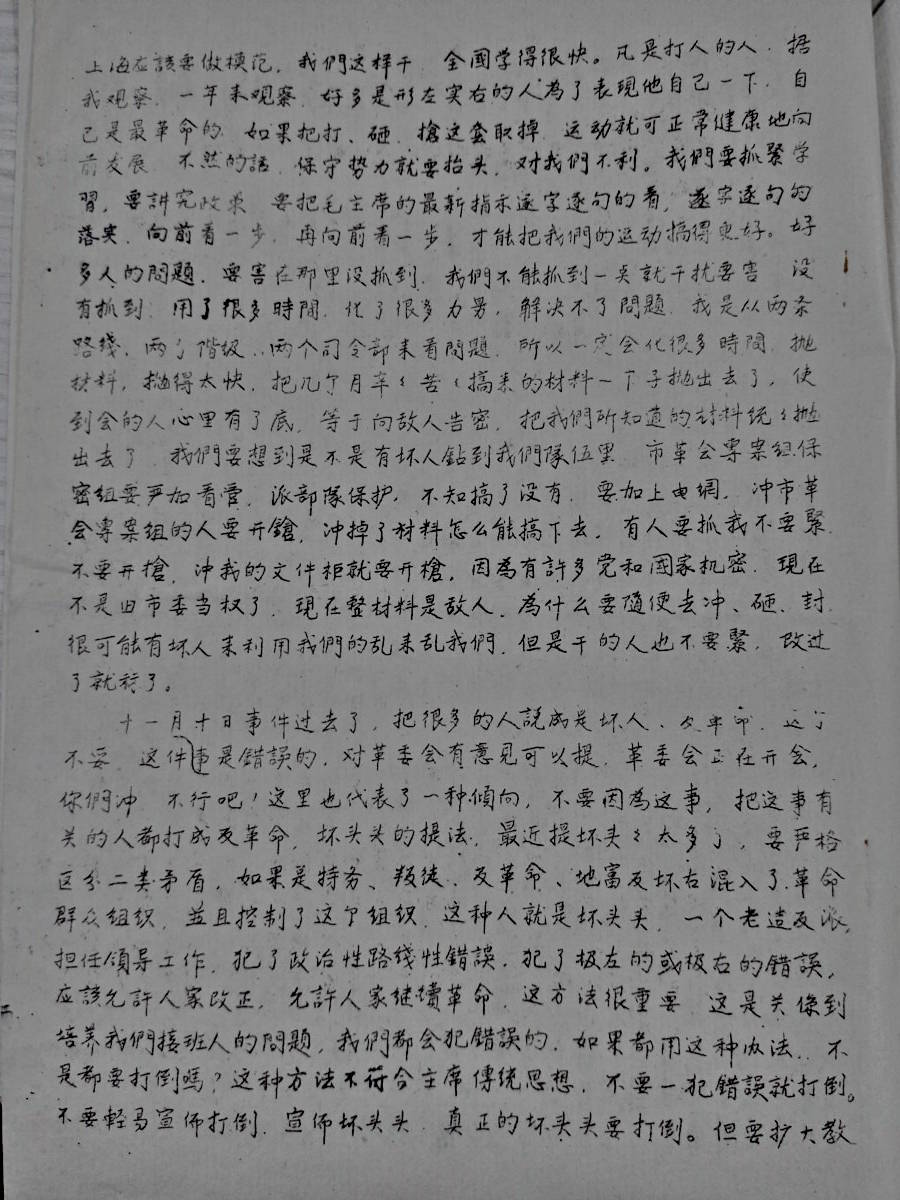 上海应該要做模范，我們这样干，全國学得很快。凡是打人的人，据
我观察，一年来观察，好多是形左实右的人為了表現他自己一下，自
己是最革命的，如果把打、砸、搶这套取掉，运动就可正常健康地向
前发展，不然的話，保守势力就要抬头，对我們不利。我們要抓緊学
習，要講究政策，要把毛主席的最新指示逐字逐句的看，逐字逐句的
落实，向前看一步，再向前看一步，才能把我們的运动搞得更好。好
多人的問題，要害在那里没抓到，我們不能抓到一点就干扰要害，没
有抓到；用了很多時間，化了很多力量，解决不了問題，我是从两条
路綫、两个階級、两个司令部来看問題，所以一定会化很多時間，抛
材料，抛得太快，把几个月辛〻苦〻搞来的材料一下子抛出去了，使
到会的人心里有了底，等于向敌人告密，把我們所知道的材料統〻抛
出去了，我們要想到是不是有坏人鉆到我們隊伍里，市革会專案組保
密組要严加看管，派部隊保护，不知搞了没有，要加上电網，冲市革
会專案組的人要开鎗，冲掉了材料怎么能搞下去，有人要抓我不要緊，
不要开槍，冲我的文件柜就要开槍，因為有許多党和國家机密，現在
不是旧市委当权了，現在整材料是敌人，為什么要隨便去冲、砸、封，
很可能有坏人来利用我們的乱来乱我們，但是干的人也不要緊，改过
了就行了。
十一月十日事件过去了，把很多的人説成是坏人、反革命，这个
不要，这件事是錯誤的，对革委会有意見可以提，革委会正在开会，
你們冲，不行吧！这里也代表了一种傾向，不要因為这事，把这事有
关的人都打成反革命，坏头头的提法，最近提坏头〻太多了，要严格
区分二类矛盾，如果是特务、叛徒、反革命、地富反坏右混入了革命
群众組织，並且控制了这个組织，这种人就是坏头头，一个老造反派，
担任領导工作，犯了政治性路綫性錯誤，犯了极左的或极右的錯誤，
应該允許人家改正，允許人家継續革命，这方法很重要，这是关係到
培养我們接班人的問題，我們都会犯錯誤的，如果都用这种办法，不
是都要打倒嗎？这种方法不符合主席傳統思想，不要一犯錯誤就打倒。
不要輕易宣佈打倒，宣佈坏头头，真正的坏头头要打倒。但要扩大教